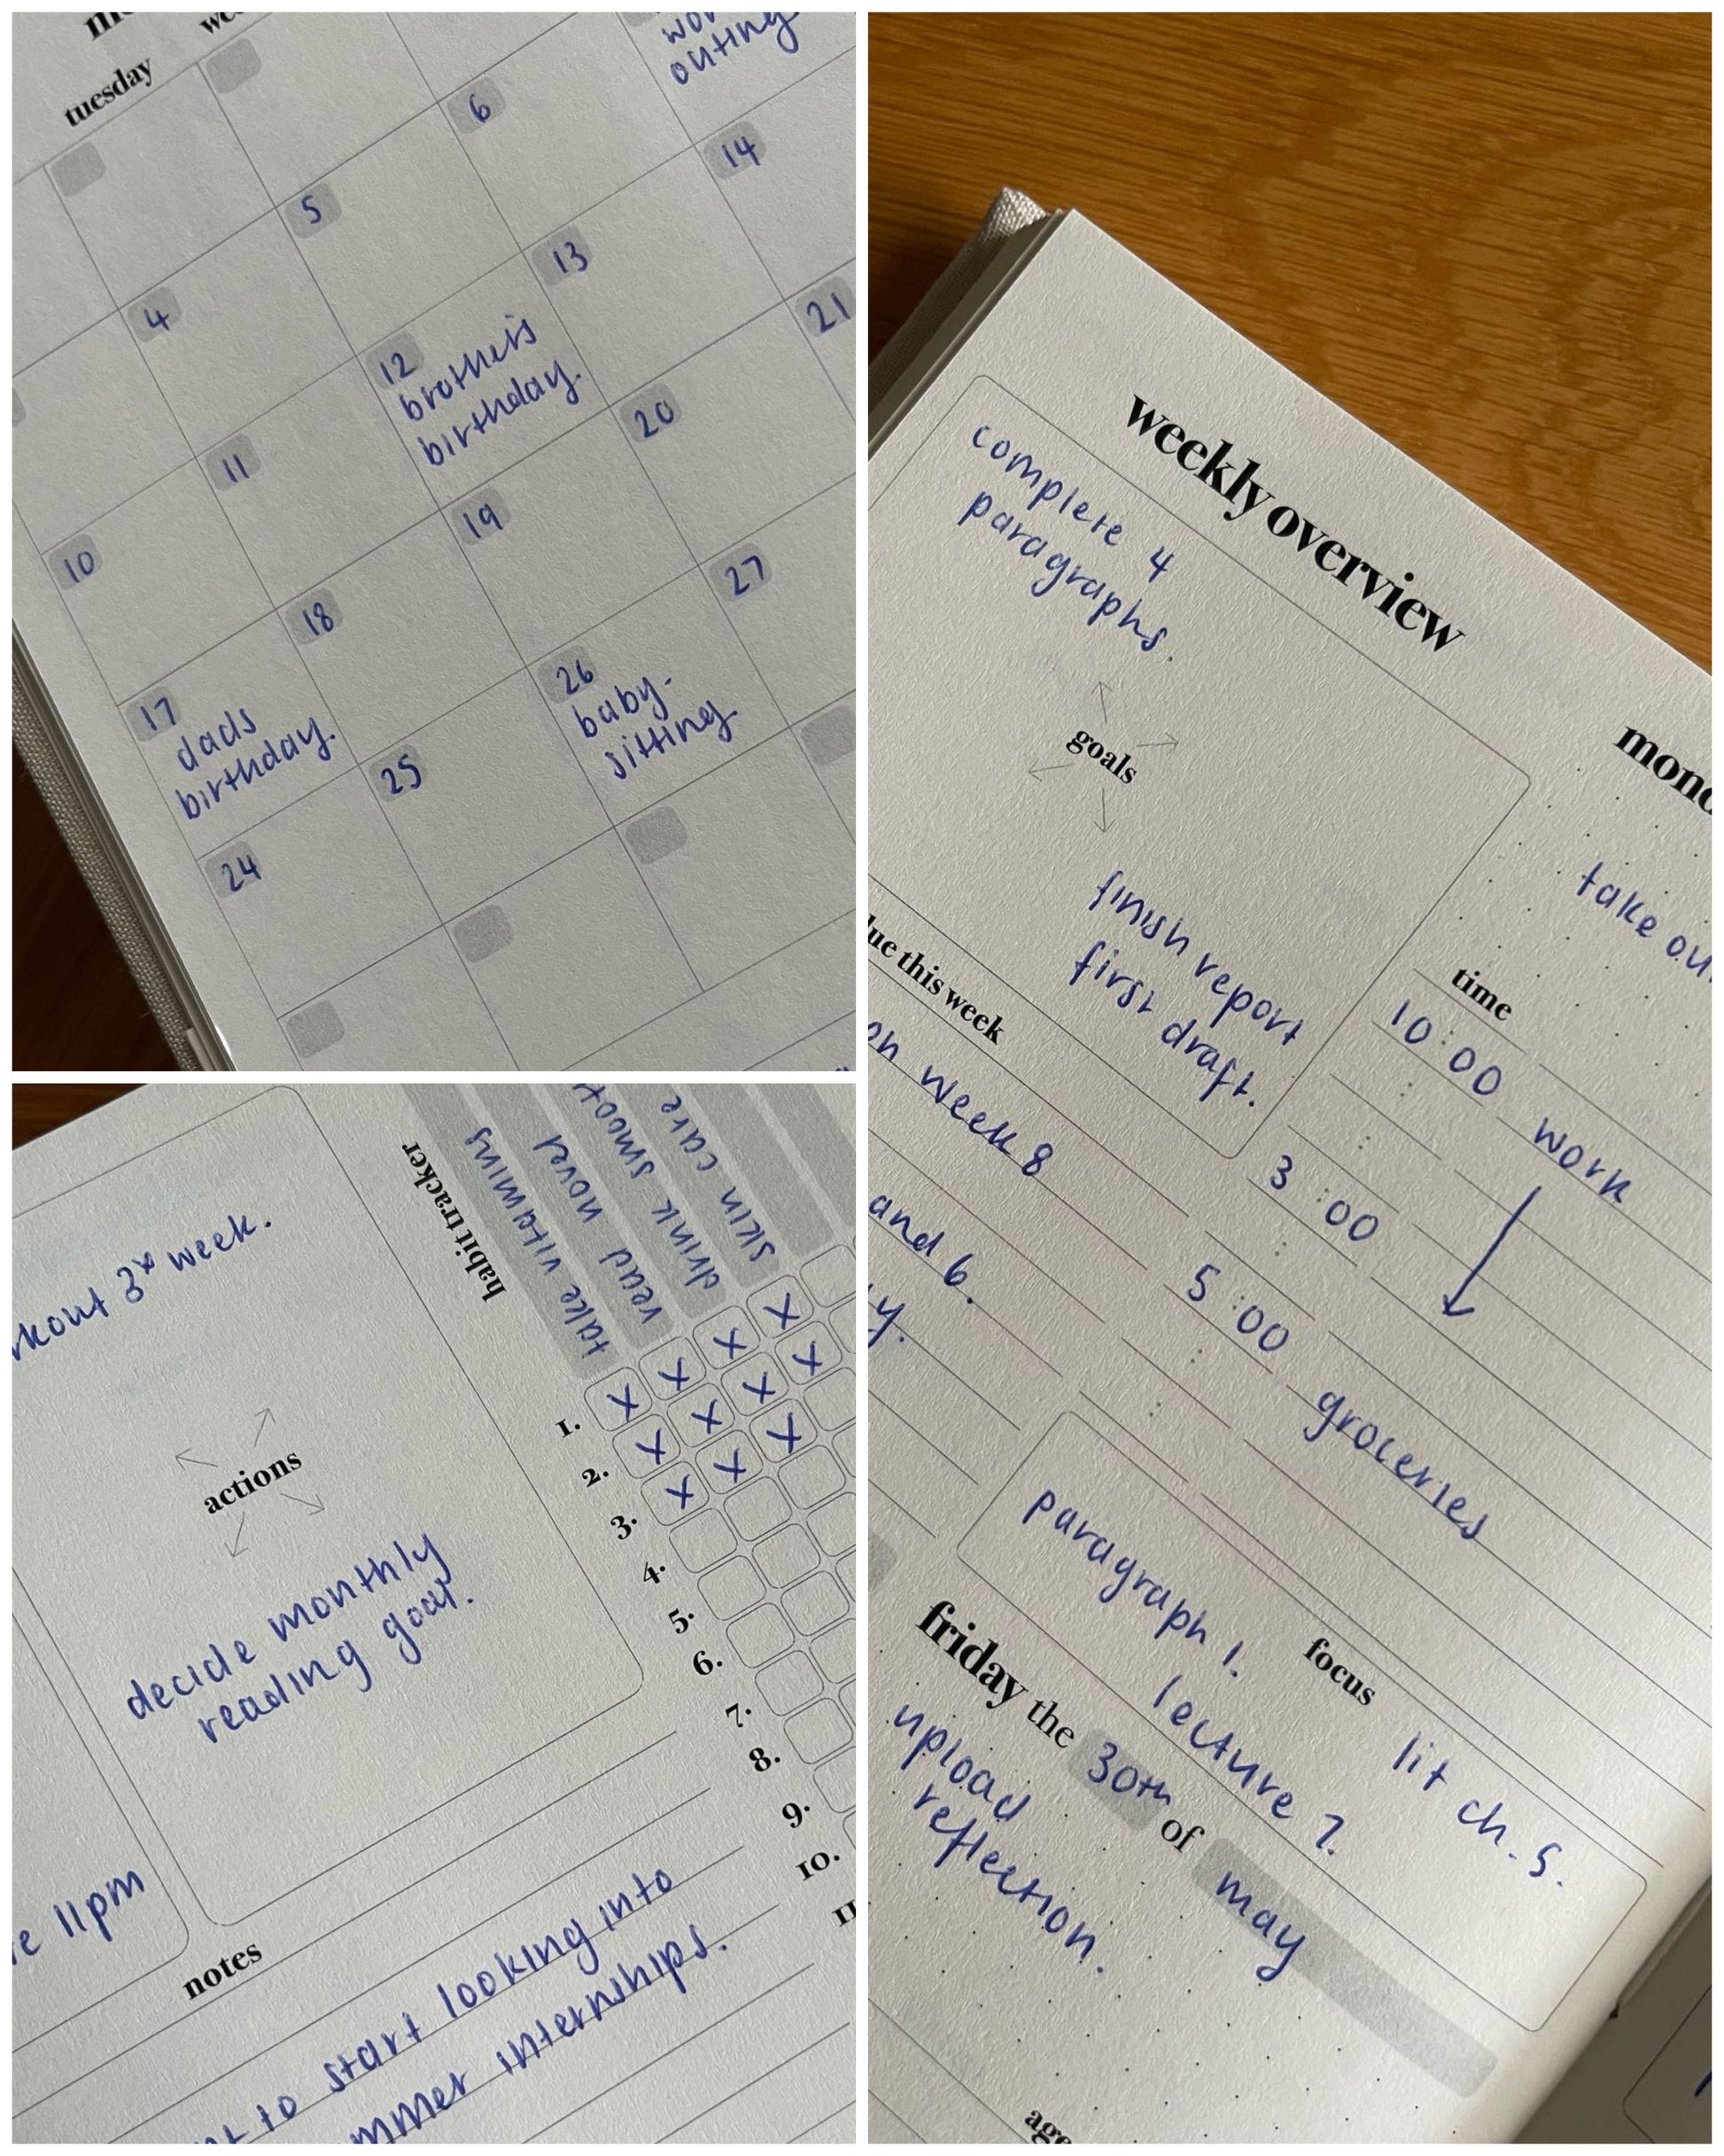 tuesday
outing
6
14
5
13
21
4
12
brother's
birthday.
20
11
19
27
10
18
26
baby-
sitting
17
dads
birthday.
25
24
weekly overview
complete 4
paragraphs.
goals
finish report
first draft.
take
this week
week 8
and 6.
time
10:00
work
3:00
5:00
groceries
paragraph 1.
lecture 7.
lit ch. 5.
focus
friday the 30th of may
upload
reflection.
3x week.
actions
decide monthly
reading goal.
11pm
habit tracker
take vitamins
read novel
drink
skin care
1. X X X X
2. X X X X
3. X X X
4.
5.
6.
7.
8.
9.
10.
notes
to start looking into
internships.